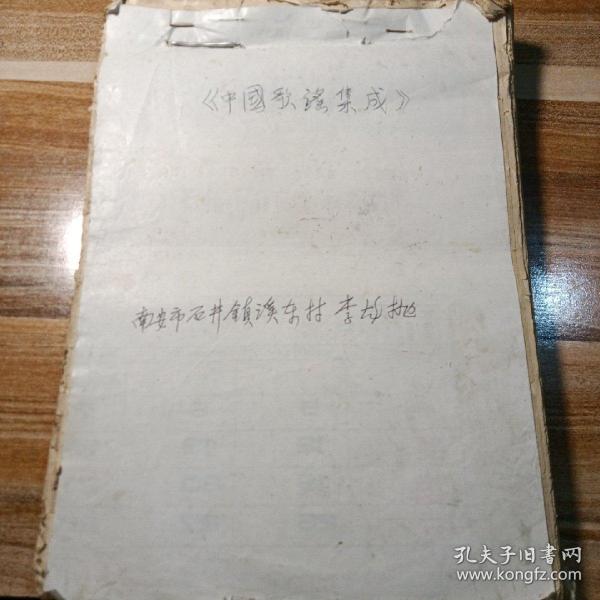 《中國歌谣集成》
南安市石井鎮溪东村 李
孔夫子旧書网
www.kongfz.com